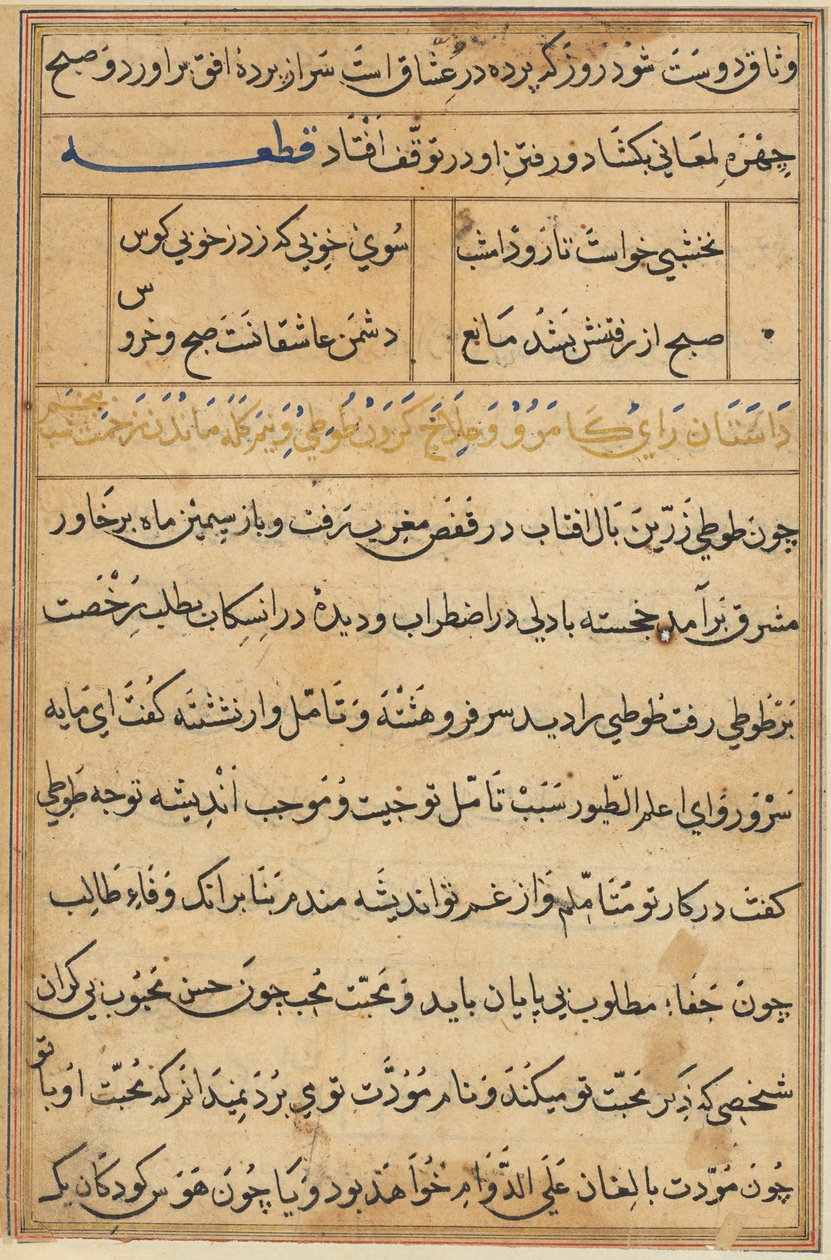 وثاق دوست شود روز که پرده در عشاق است سر از پردهٔ افق براورد و صبح
چهره لمعانی بکشاد و رفتن او در توقف افتاد قطعه
نخشبی خواست تا رود امشب سوی خوبی که زد ز خوبی کوس
صبح از رفتنش بشد مانع دشمن عاشقانست صبح و خروس
داستان رای کامرو و حاج کردن طوطی و نیم کله ماندن زحمت شب پنجم
چون طوطی زرین بال افتاب در قفص مغرب رفت و باز سیمین ماه بر خاور
مشرق برآمد خجسته با دلی در اضطراب و دیدهٔ در انسکاب بطلب رخصت
بر طوطی رفت طوطی را دید سر فرو هشته و تامل وار نشسته کفت ای مایه
سرور و ای اعلم الطیور سبب تامل تو چیست و موجب اندیشه تو چه طوطی
کفت در کار تو متاملم و از غم تو اندیشه مندم بنا برانک وفاء طالب
چون جفاء مطلوب بی پایان باید و محبت محب چون حسن محبوب بی کران
شخصی که ذکر محبت تو میکند و نام مودت تو می برد نمیدانم که محبت او با تو
چون مودت بالغان علی الدوام خواهد بود و یا چون هوس کودکان یک